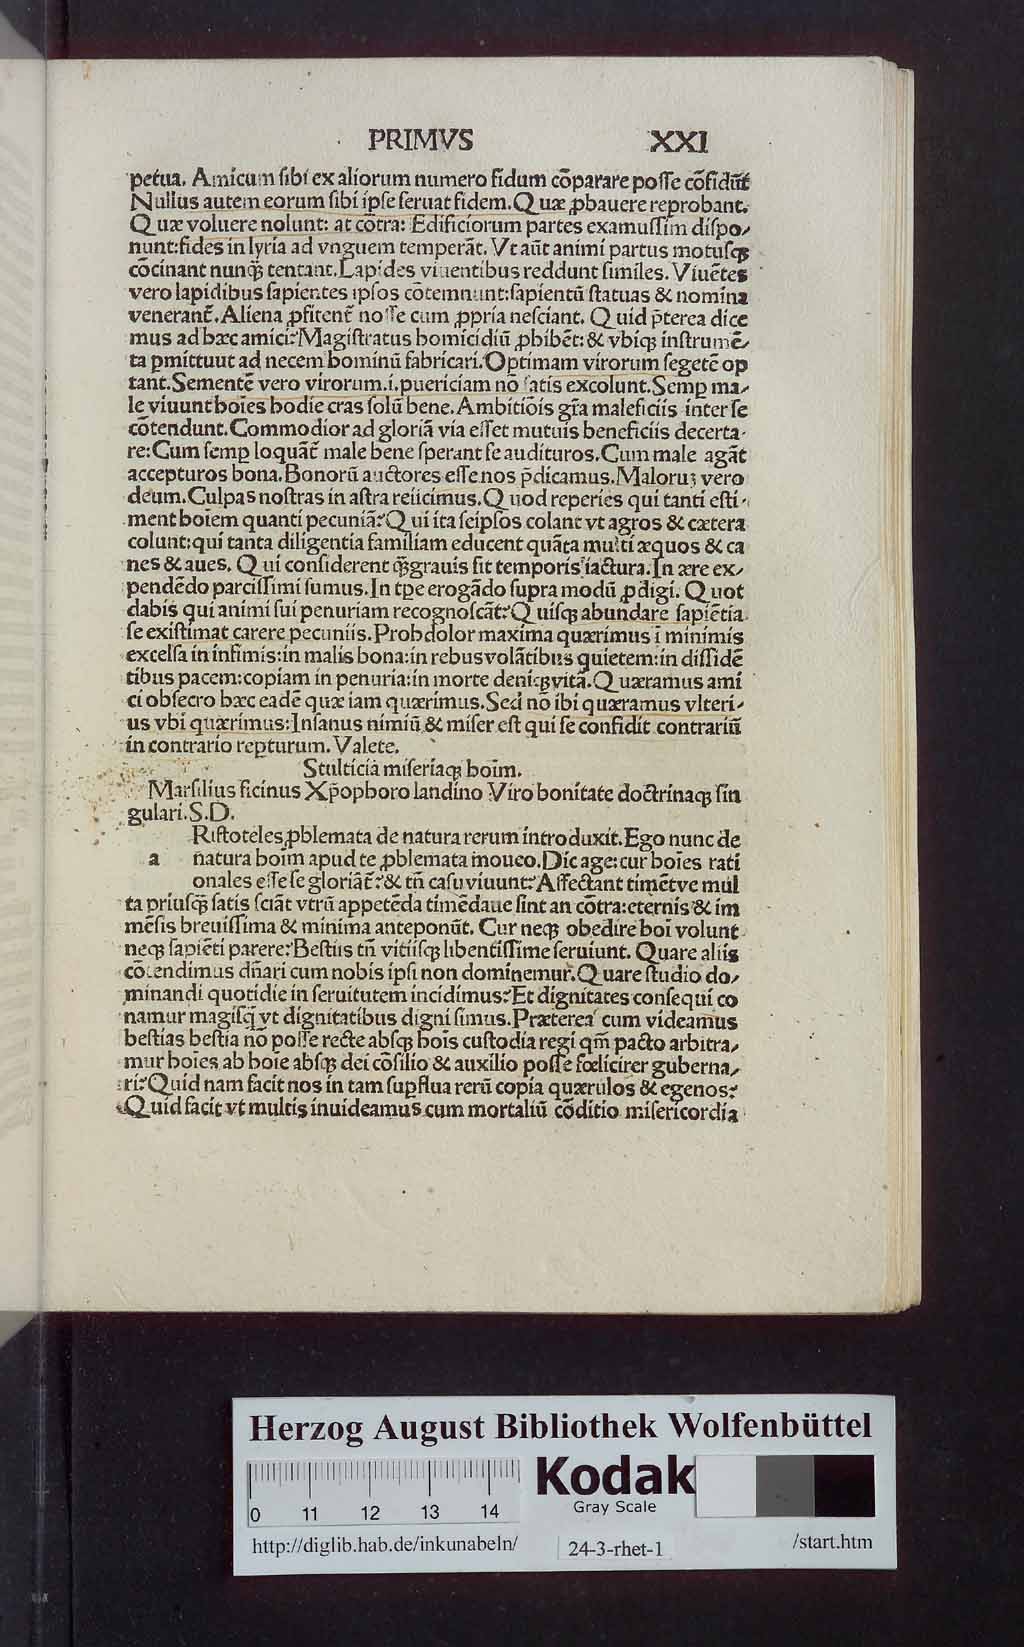 PRIMVS XXI
petua. Amicum sibi ex aliorum numero fidum cõparare posse cõfidũt
Nullus autem eorum sibi ipse seruat fidem. Quæ ꝓbauere reprobant.
Quæ voluere nolunt: at cõtra: Edificiorum partes examussim dispo⸗
nunt: fides in lyria ad vnguem temperãt. Vt aũt animi partus motusqꝫ
cõcinant nunqꝫ̃ tentant. Lapides viuentibus reddunt similes. Viuẽtes
vero lapidibus sapientes ipsos cõtemnunt: sapientũ statuas & nomina
venerant̃. Aliena ꝓfitent̃ nosse cum ꝓpria nesciant. Quid p̃terea dice
mus ad hæc amici? Magistratus homicidiũ ꝓhibẽt: & vbiqꝫ instrumẽ⸗
ta ꝑmittuut ad necem hominũ fabricari. Optimam virorum segetẽ op
tant. Sementẽ vero virorum .i. puericiam nõ satis excolunt. Semꝑ ma⸗
le viuunt hoĩes hodie cras solũ bene. Ambitiõis gr̃a maleficiis inter se
cõtendunt. Commodior ad gloriã via esset mutuis beneficiis decerta⸗
re: Cum semꝑ loquãt̃ male bene sperant se audituros. Cum male agãt
accepturos bona. Bonorũ auctores esse nos p̃dicamus. Maloruꝫ vero
deum. Culpas nostras in astra reiicimus. Quod reperies qui tanti esti⸗
ment hoĩem quanti pecuniã? Qui ita seipsos colant vt agros & cætera
colunt: qui tanta diligentia familiam educent quãta multi æquos & ca
nes & aues. Qui considerent qꝫ̃ grauis sit temporis iactura. In ære ex⸗
pendẽdo parcissimi sumus. In tꝑe erogãdo supra modũ ꝓdigi. Quot
dabis qui animi sui penuriam recognoscãt? Quisqꝫ abundare sapiẽtia
se existimat carere pecuniis. Proh dolor maxima quærimus ĩ minimis
excelsa in infimis: in malis bona: in rebus volãtibus quietem: in dissidẽ
tibus pacem: copiam in penuria: in morte deniqꝫ vitã. Quæramus ami
ci obsecro hæc eadẽ quæ iam quærimus. Sed nõ ibi quæramus vlteri⸗
us vbi quærimus: Insanus nimiũ & miser est qui se confidit contrariũ
in contrario reꝑturum. Valete.
Stulticia miseriaqꝫ hoĩm.
Marsilius ficinus Xp̃ophoro landino Viro bonitate doctrinaqꝫ sin
gulari. S.D.
Ristoteles ꝓblemata de natura rerum introduxit. Ego nunc de
a natura hoĩm apud te ꝓblemata ĩnouco. Dic age: cur hoĩes rati
onales esse se gloriãt̃? & tñ casu viuunt? Affectant timẽtve mul
ta priusqꝫ̃ satis sciãt vtrũ appetẽda timẽdaue sint an cõtra: eternis & im
mẽsis breuissima & minima anteponũt. Cur neqꝫ obedire hoĩ volunt
neqꝫ sapiẽti parere? Bestiis tñ vitiisqꝫ libentissime seruiunt. Quare aliis
cõtendimus dñari cum nobis ipsi non dominemur. Quare studio do⸗
minandi quotidie in seruitutem incidimus? Et dignitates consequi co
namur magisqꝫ̃ vt dignitatibus digni simus. Præterea cum videamus
bestias bestia nõ posse recte absqꝫ hoĩs custodia regi qm̃ pacto arbitra⸗
mur hoĩes ab hoĩe absqꝫ dei cõsilio & auxilio posse fœlicirer guberna⸗
ri? Quid nam facit nos in tam suꝑflua rerũ copia quærulos & egenos?
Quid facit vt multis inuideamus cum mortaliũ cõditio misericordia
Herzog August Bibliothek Wolfenbüttel
Kodak
Gray Scale
0 11 12 13 14
http://diglib.hab.de/inkunabeln/ 24-3-rhet-1 /start.htm